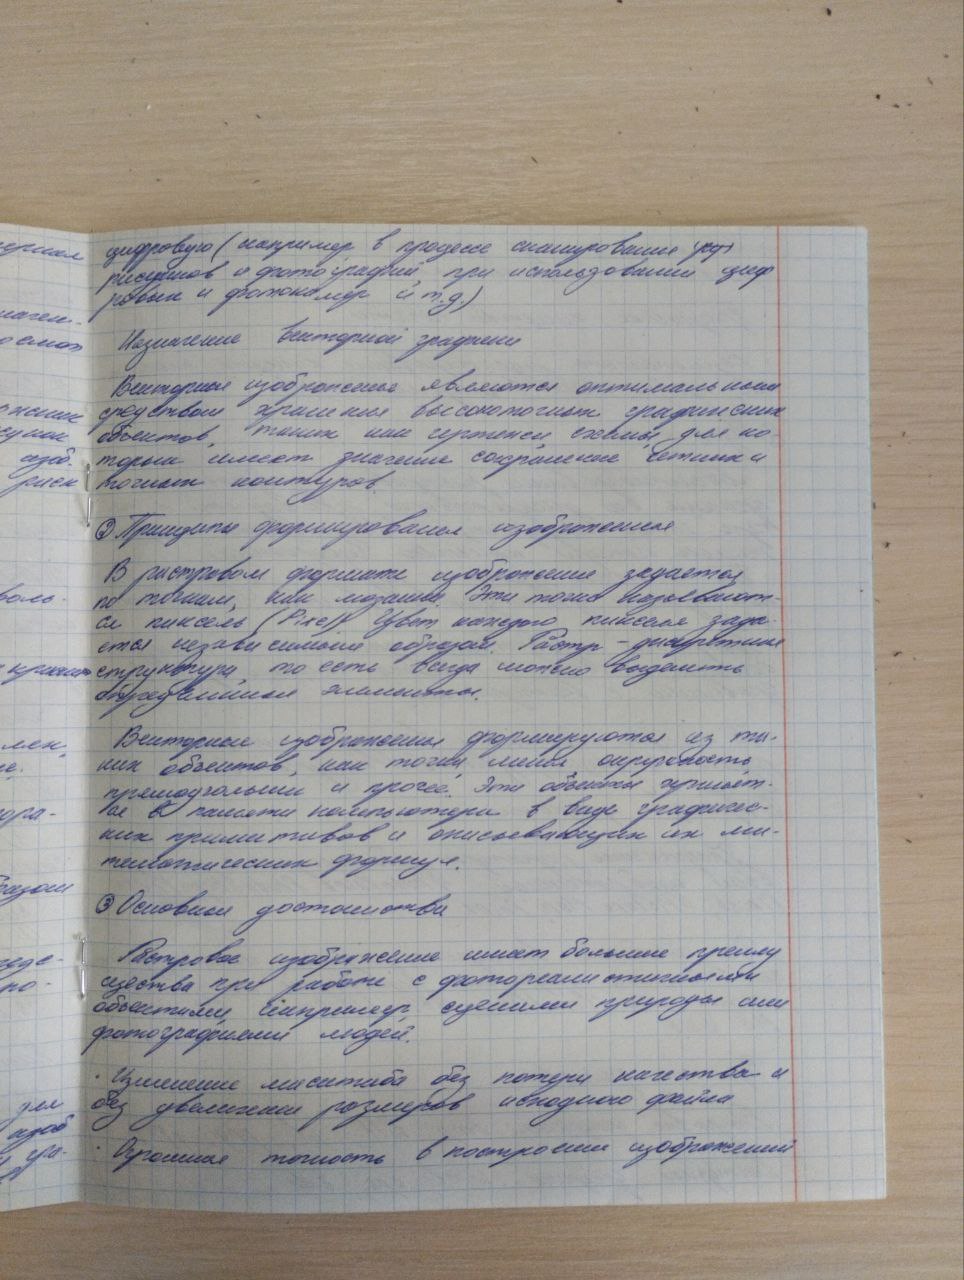 цифровую (например в процессе сканирования
рисунков и фотографий при использовании циф
ровых и фотокамер и т.д.)
Назначение векторной графики
Векторные изображения являются оптимальным
средством хранения высокоточных графических
объектов, таких как чертежи схемы, для ко
торых имеет значение сохранение четких и
точных контуров.
② Принципы формирования изображения
В растровом формате изображение задается
по точкам, как мозаика. Эти точки называют-
ся пиксель (Pixel) Цвет каждого пикселя зада-
ется независимым образом. Растр - дискретная
структура, то есть всегда можно выделить
определённые элементы.
Векторные изображения формируются из та-
ких объектов, как точка линия окружность
прямоугольники и прочее. Эти объекты хранят-
ся в памяти компьютера в виде графичес-
ких примитивов и описывающих их ма-
тематических формул.
③ Основные достоинства
Растровое изображение имеет большие преиму
щества при работе с фотореалистичными
объектами например, сценами природы или
фотографиями людей.
· Изменение масштаба без потери качества и
без увеличения размеров исходного файла
· Огромная точность в построении изображений